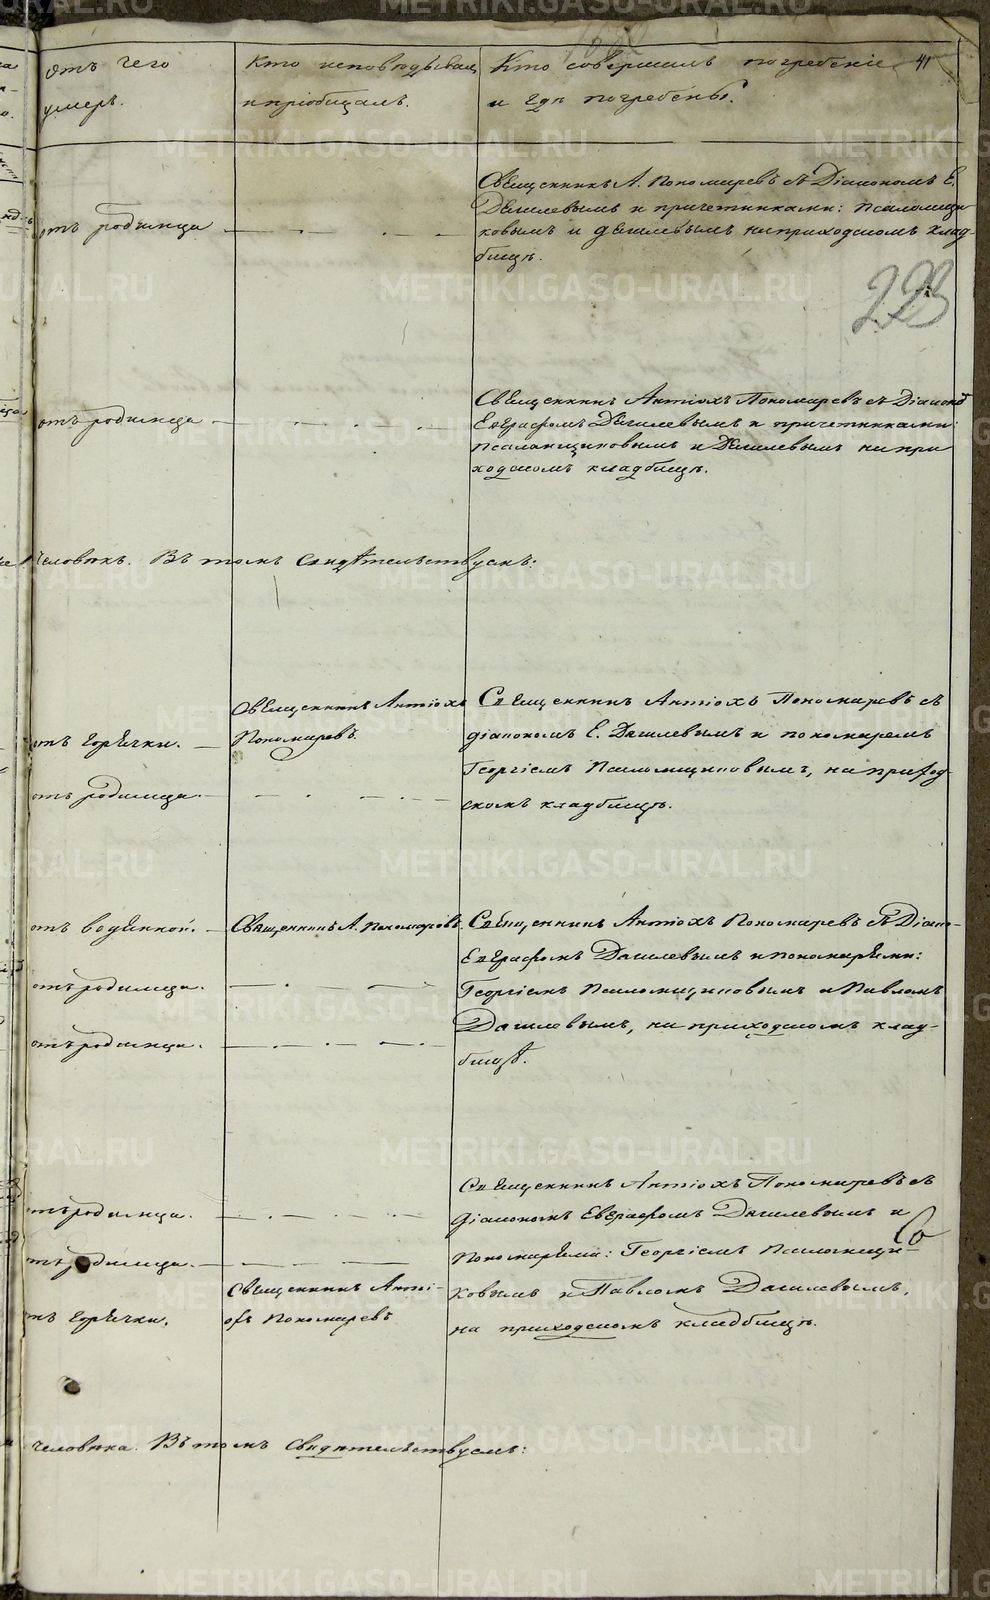 отъ чего
умеръ.
Кто исповѣдывалъ
и пріобщалъ.
Кто совершилъ погребеніе
и гдѣ погребены?
41
отъ родимца
Священникъ А. Пономаревъ съ Діакономъ Е.
Дягилевымъ и причетниками: Псаломщи
ковымъ и Дягилевымъ на приходскомъ клад-
бищѣ.
223
отъ родимца
Священникъ Антіохъ Пономаревъ съ Діакономъ
Евграфомъ Дягилевымъ и причетниками:
Псаломщиковымъ и Дягилевымъ на при
ходскомъ кладбищѣ.
человѣкъ. Въ томъ свидѣтельствуемъ:
отъ горячки.
Священникъ Антіохъ
Пономаревъ.
Священникъ Антіохъ Пономаревъ съ
діакономъ Е. Дягилевымъ и пономаремъ
Георгіемъ Псаломщиковымъ, на приход-
скомъ кладбищѣ.
отъ родимца.
отъ водяной.
Священникъ А. Пономаревъ
Священникъ Антіохъ Пономаревъ съ Діако-
Евграфомъ Дягилевымъ и пономарями:
Георгіемъ Псаломщиковымъ и Павломъ
Дягилевымъ, на приходскомъ клад-
бищѣ.
отъ родимца.
отъ родимца.
отъ родимца.
Священникъ Антіохъ Пономаревъ съ
Діакономъ Евграфомъ Дягилевымъ и
Пономарями: Георгіемъ Псаломщи-
ковымъ и Павломъ Дягилевымъ,
на приходскомъ кладбищѣ.
отъ родимца.
отъ горячки.
Священникъ Анті-
охъ Пономаревъ
человѣка. Въ томъ свидѣтельствуемъ:
METRIKI.GASO-URAL.RU